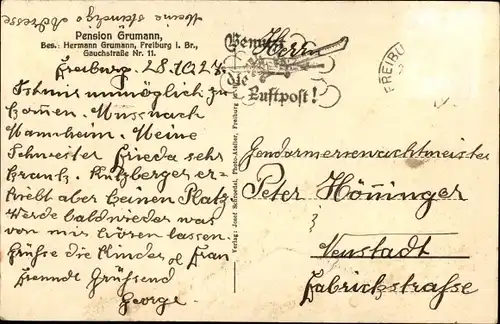 Meine ständige Adresse
Pension Grumann,
Bes.: Hermann Grumann, Freiburg i. Br.,
Gauchstraße Nr. 11.
Freiburg. 28.10.27.
Ist mir unmöglich zu
kommen. Muss nach
Mannheim. Meine
Schwester Frieda sehr
krank.
aber keinen Platz
Werde bald wieder was
von mir hören lassen.
Grüße die Kinder Frau
Freundl Grüssend
George.
Verlag: Josef Photo-Atelier, Freiburg
Benutzt
die
Luftpost!
FREIBU
Herrn
Gendarmeriewachtmeister
Peter Höninger
Neustadt
Fabrickstrasse